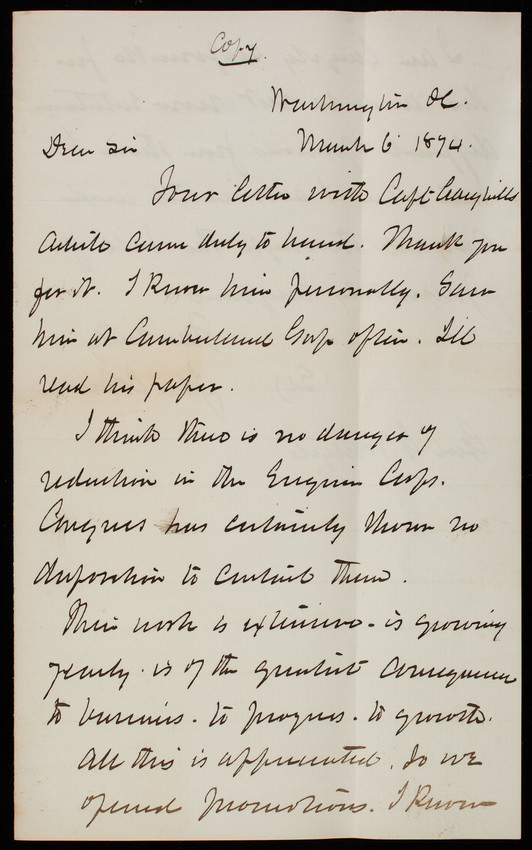 Copy.
Washington DC.
March 6 1874.
Dear Sir
Your letter with Capt
article came duly to hand. Thank you
for it. I know him personally. Saw
him at Cumberland Gap often. I'll
read his paper.
I think there is no danger of
reduction in the Engineer Corps.
Congress has certainly shown no
disposition to curtail them.
Their work is extensive - is growing
yearly - is of the greatest consequence
to business - to progress - to growth.
All this is appreciated. So we
opened promotions. I know